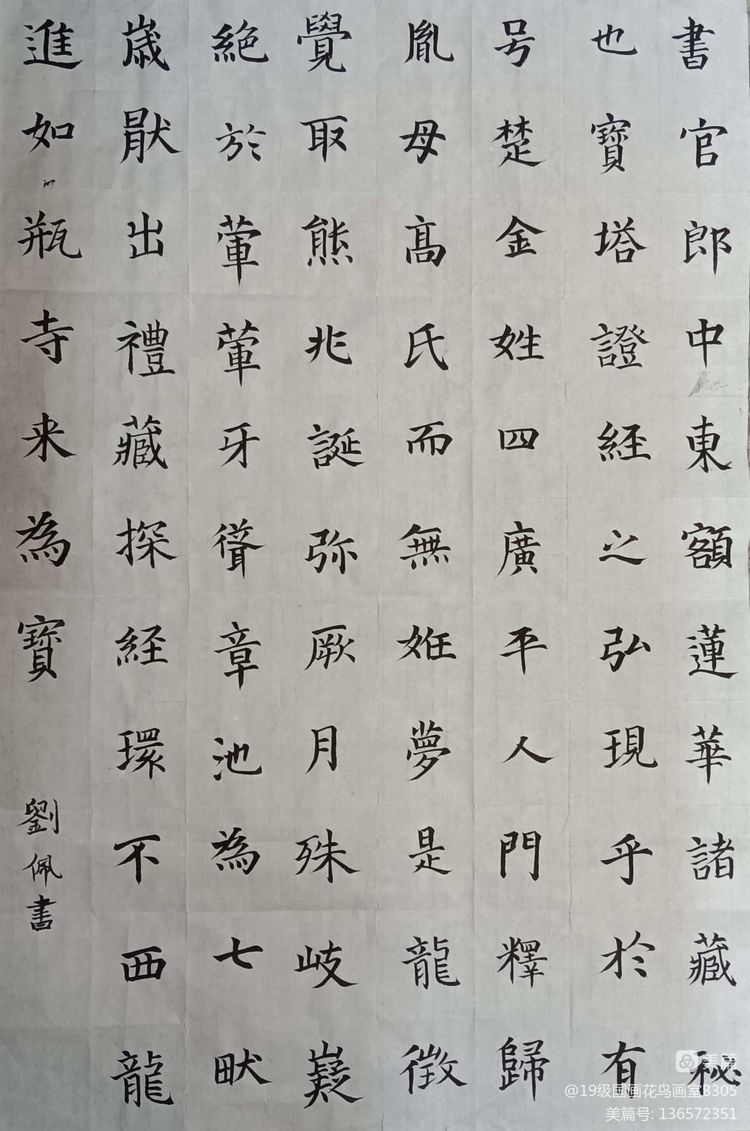 書官郎中東額蓮華諸藏秘
也寶塔證経之弘現乎於有
号楚金姓四廣平人門釋歸
胤母髙氏而無姙夢是龍徵
覺取熊兆誕弥厥月殊岐嶷
絕於葷葷牙聳章池為七畎
嵗猒出禮藏探経環不西龍
進如瓶寺来為寶
劉佩書
美篇
@19级国画花鸟画室B305
美篇号: 136572351